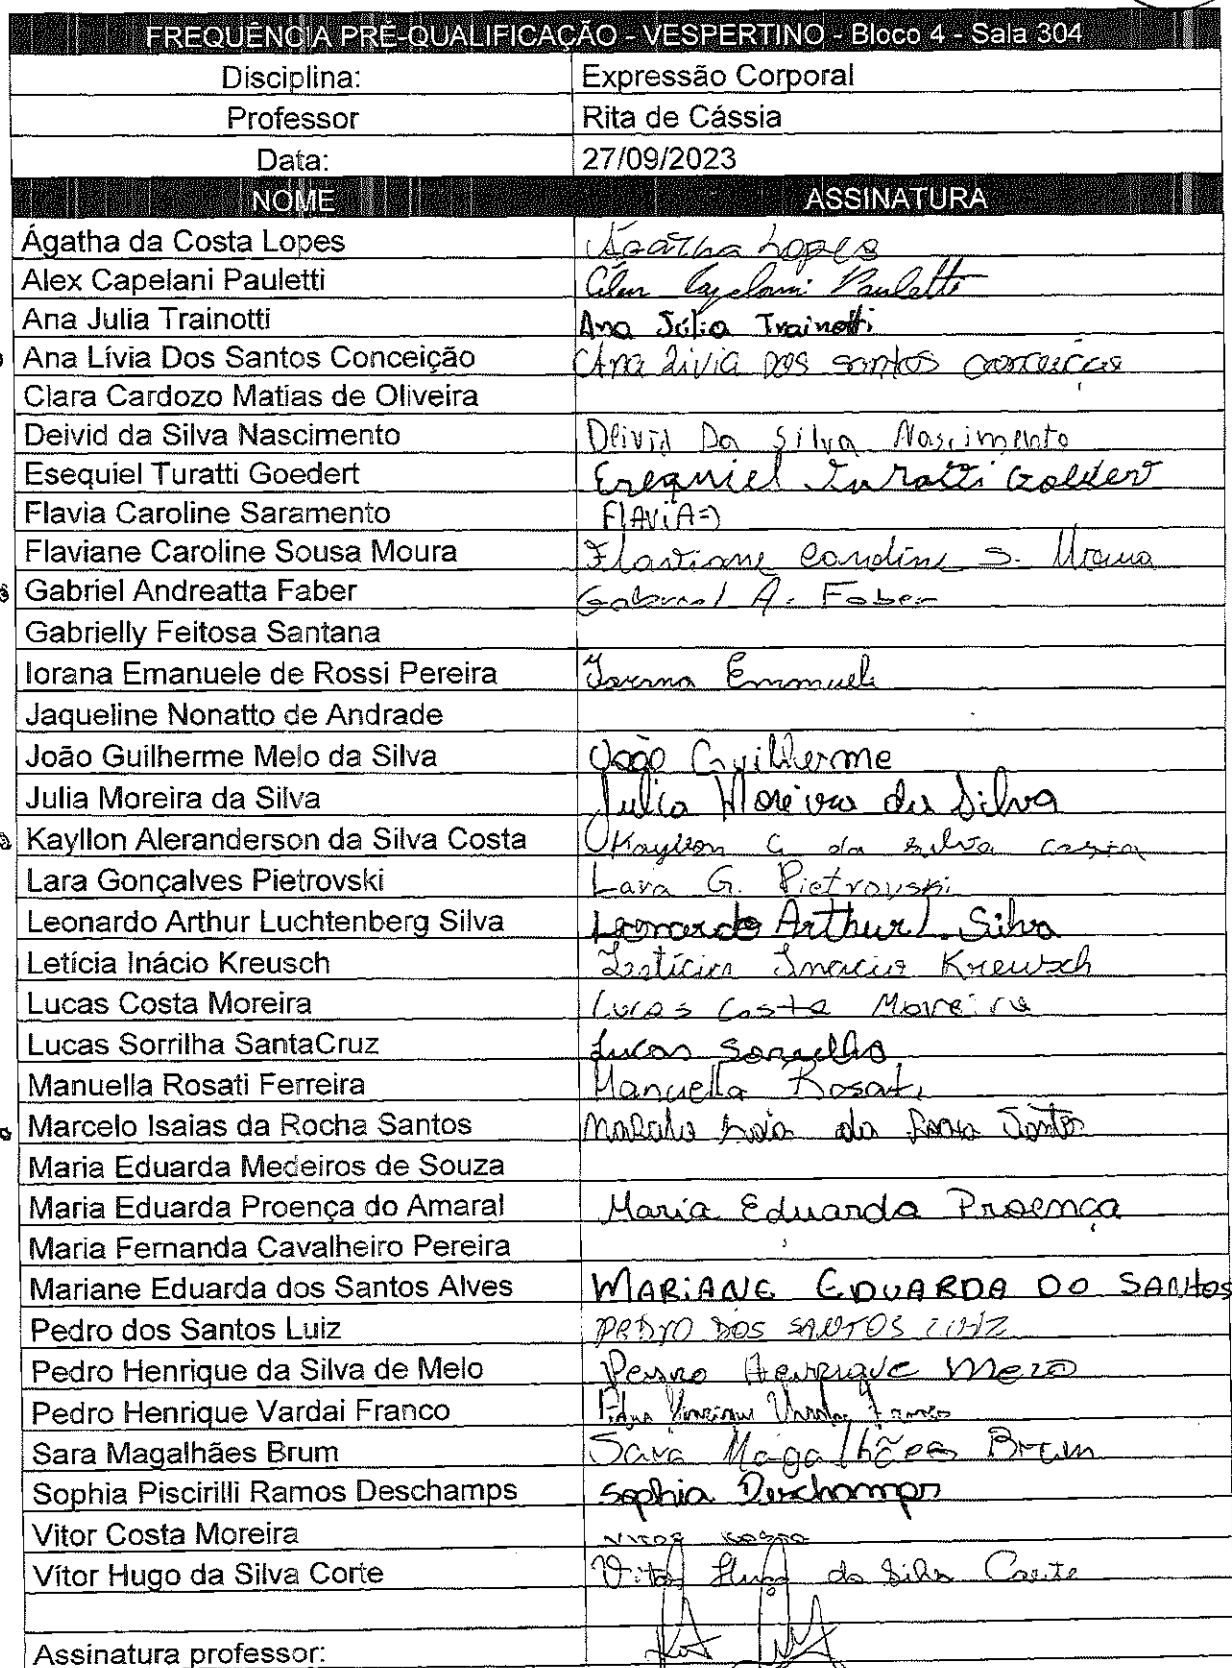 FREQUÊNCIA PRÉ-QUALIFICAÇÃO - VESPERTINO - Bloco 4 - Sala 304
Disciplina: Expressão Corporal
Professor Rita de Cássia
Data: 27/09/2023
NOME ASSINATURA
Ágatha da Costa Lopes Agatha Lopes
Alex Capelani Pauletti Alex Capelani Pauletti
Ana Julia Trainotti Ana Júlia Trainotti
Ana Lívia Dos Santos Conceição Ana Livia dos santos conceição
Clara Cardozo Matias de Oliveira
Deivid da Silva Nascimento Deivid Da Silva Nascimento
Esequiel Turatti Goedert Esequiel Turatti Goedert
Flavia Caroline Saramento FlAViA=)
Flaviane Caroline Sousa Moura Flaviane Caroline S. Moura
Gabriel Andreatta Faber Gabriel A. Faber
Gabrielly Feitosa Santana
Iorana Emanuele de Rossi Pereira Iorana Emanuele
Jaqueline Nonatto de Andrade
João Guilherme Melo da Silva João Guilherme
Julia Moreira da Silva Julia Moreira da Silva
Kayllon Aleranderson da Silva Costa Kayllon da silva costa
Lara Gonçalves Pietrovski Lara G. Pietrovski
Leonardo Arthur Luchtenberg Silva Leonardo Arthur L. Silva
Letícia Inácio Kreusch Letícia Inacio Kreusch
Lucas Costa Moreira Lucas Costa Moreira
Lucas Sorrilha SantaCruz Lucas Sorrilha
Manuella Rosati Ferreira Manuella Rosati
Marcelo Isaias da Rocha Santos Marcelo Isaias da Rocha Santos
Maria Eduarda Medeiros de Souza
Maria Eduarda Proença do Amaral Maria Eduarda Proença
Maria Fernanda Cavalheiro Pereira
Mariane Eduarda dos Santos Alves MARiANE EDUARDA DO SANtos
Pedro dos Santos Luiz PEDrO DOS SANTOS LUIZ
Pedro Henrique da Silva de Melo Pedro Henrique Melo
Pedro Henrique Vardai Franco Pedro Henrique Vardai Franco
Sara Magalhães Brum Sara Magalhães Brum
Sophia Piscirilli Ramos Deschamps Sophia Deschamps
Vitor Costa Moreira Vitor Costa
Vítor Hugo da Silva Corte Vitor Hugo da Silva Corte
Assinatura professor: